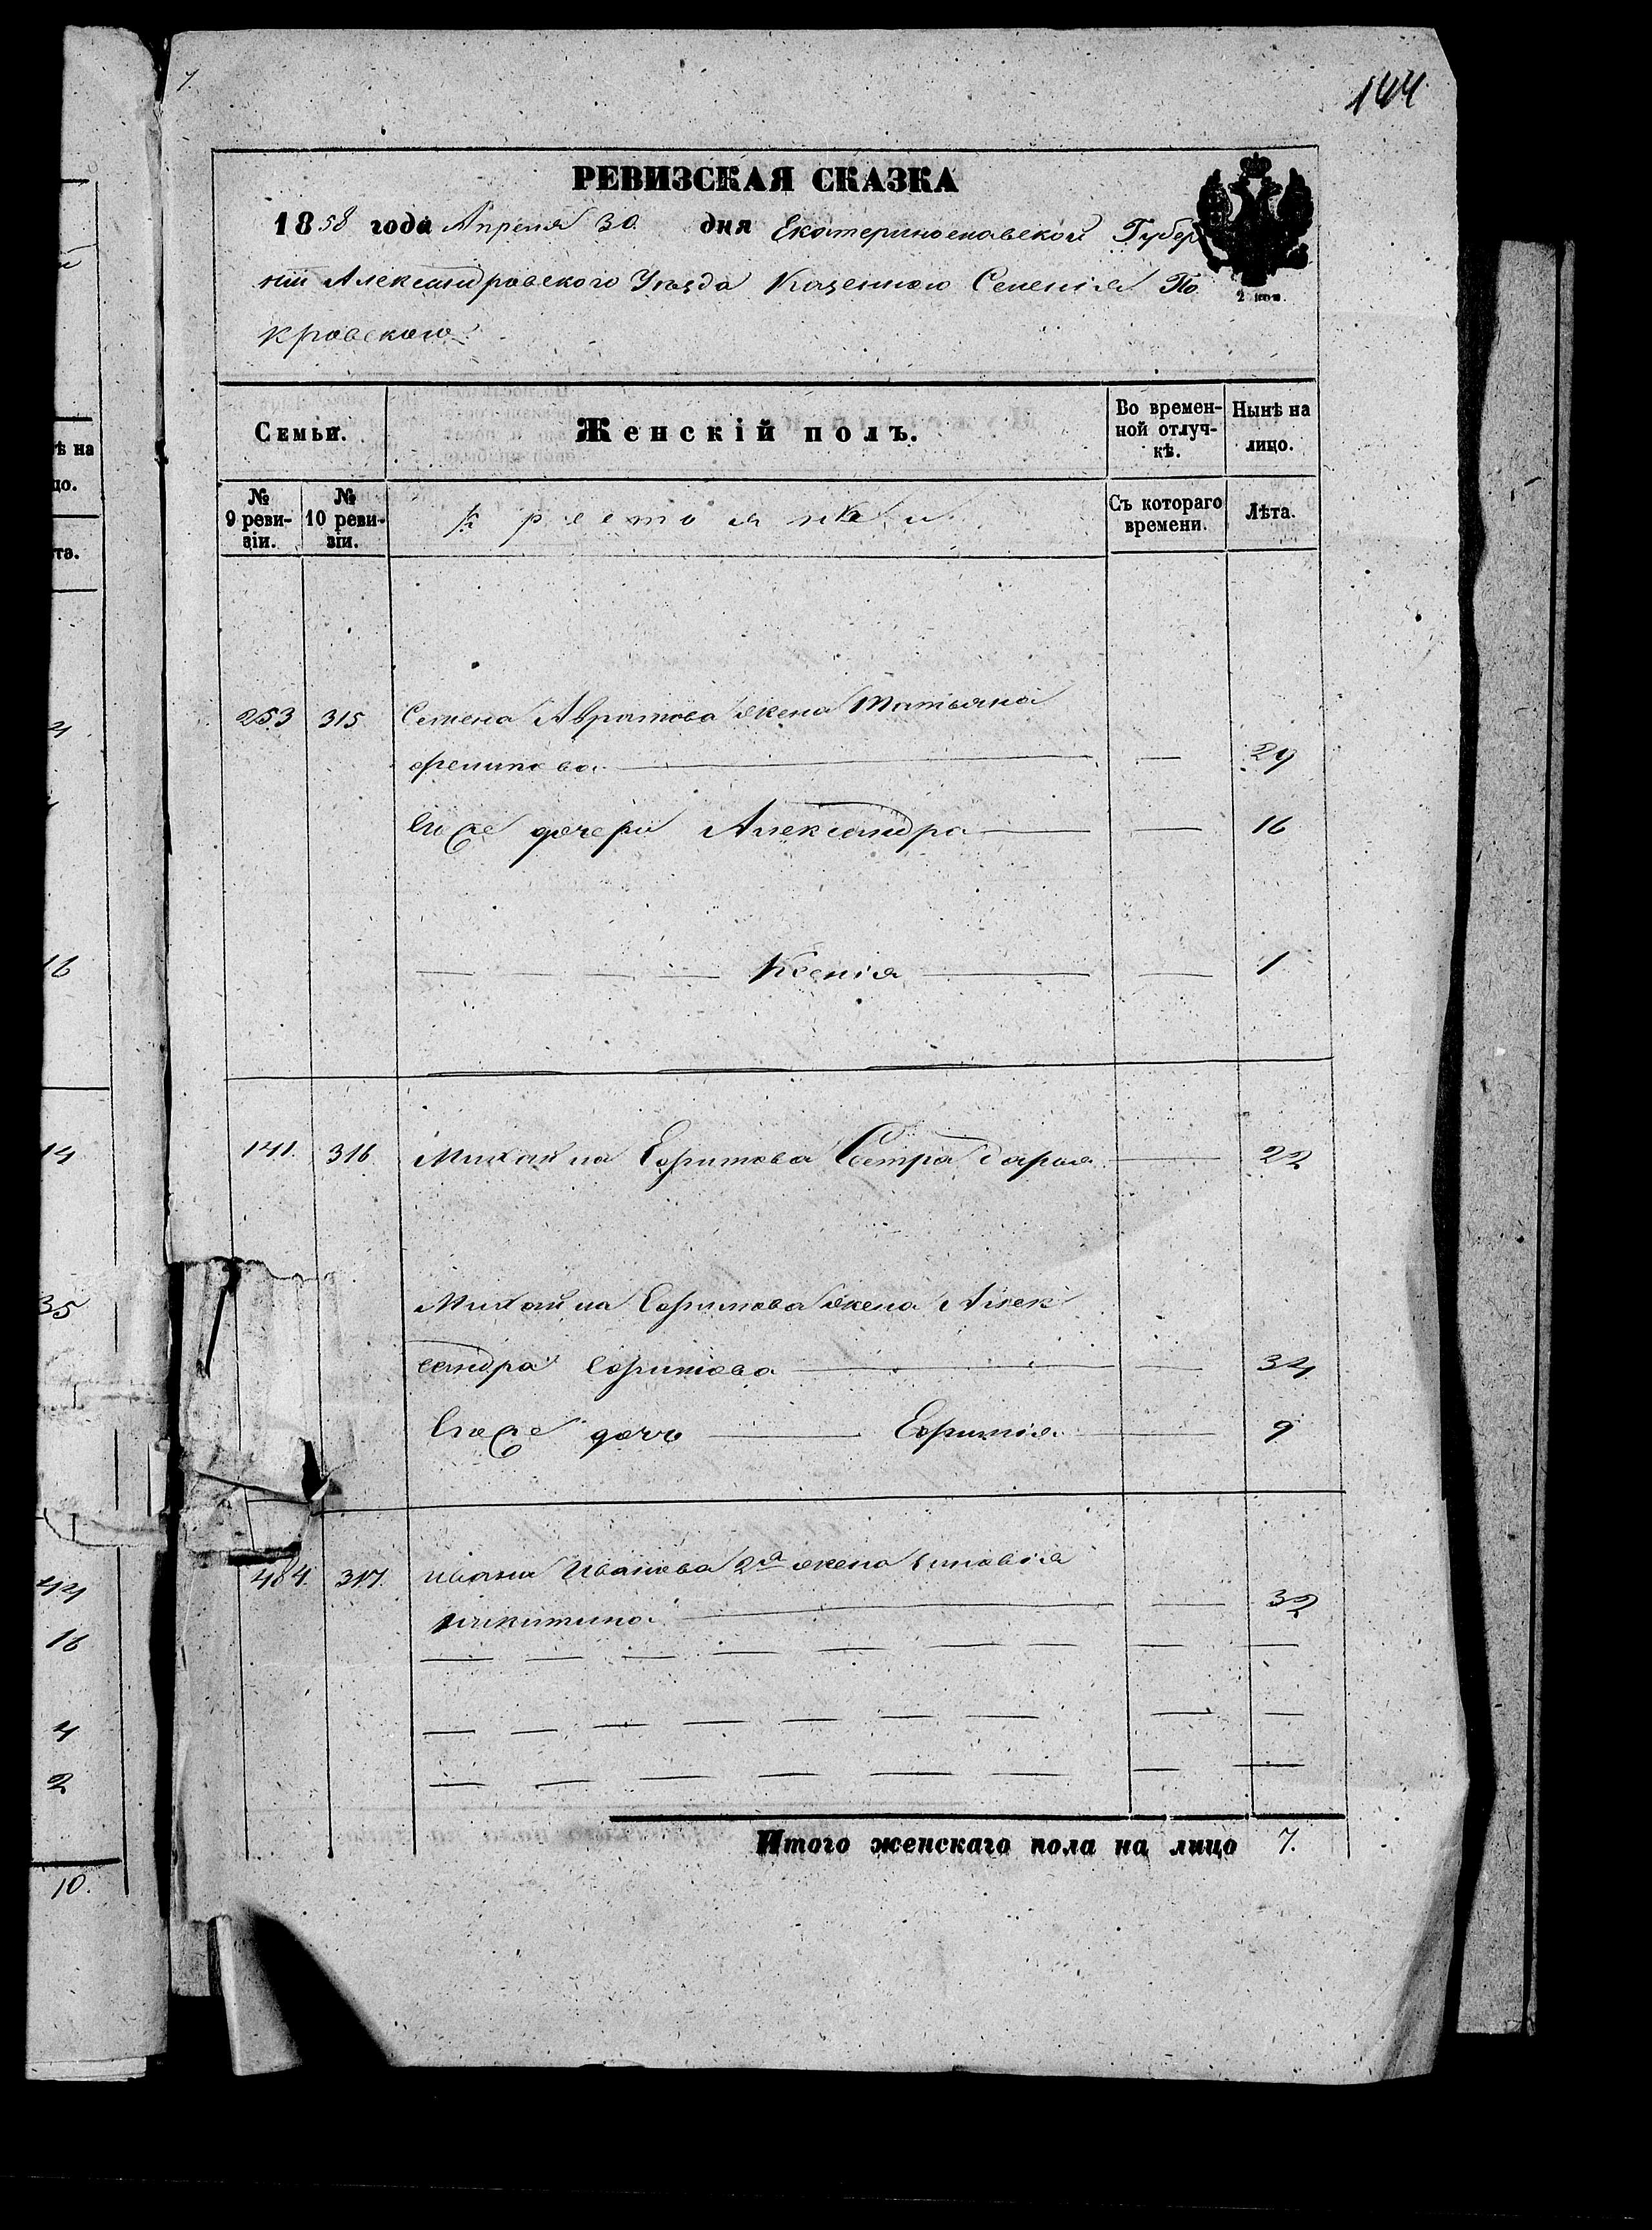 144
РЕВИЗСКАЯ СКАЗКА
1858 года Апреля 30 дня Екатеринославской Губер
нии Александровского Уѣзда Казенного Селенія По
кровского
2 коп.
Семьи.
Женскій полъ.
Во времен-
ной отлуч-
кѣ.
Нынѣ на
лицо.
№
9 реви-
зіи.
№
10 реви-
зіи.
Крестоянки
Съ котораго
времени.
Лѣта.
253 315 Семена Авратова жена Татьяна
филипова — 29
Ихже дочери Александра — 16
Ксенія — 1
141. 316 Михайла Ефимова Сестра дарья — 22
Михайла Ефимова жена Алек
сандра Ефимова — 34
Ихже дочь — Ефимія — 9
484. 317. ивана Иванова 2а жена Зиновія
никитина — 32
Итого женскаго пола на лицо 7.
ѣ на
цо.
та.
16
14
35
44
16
4
2
10.